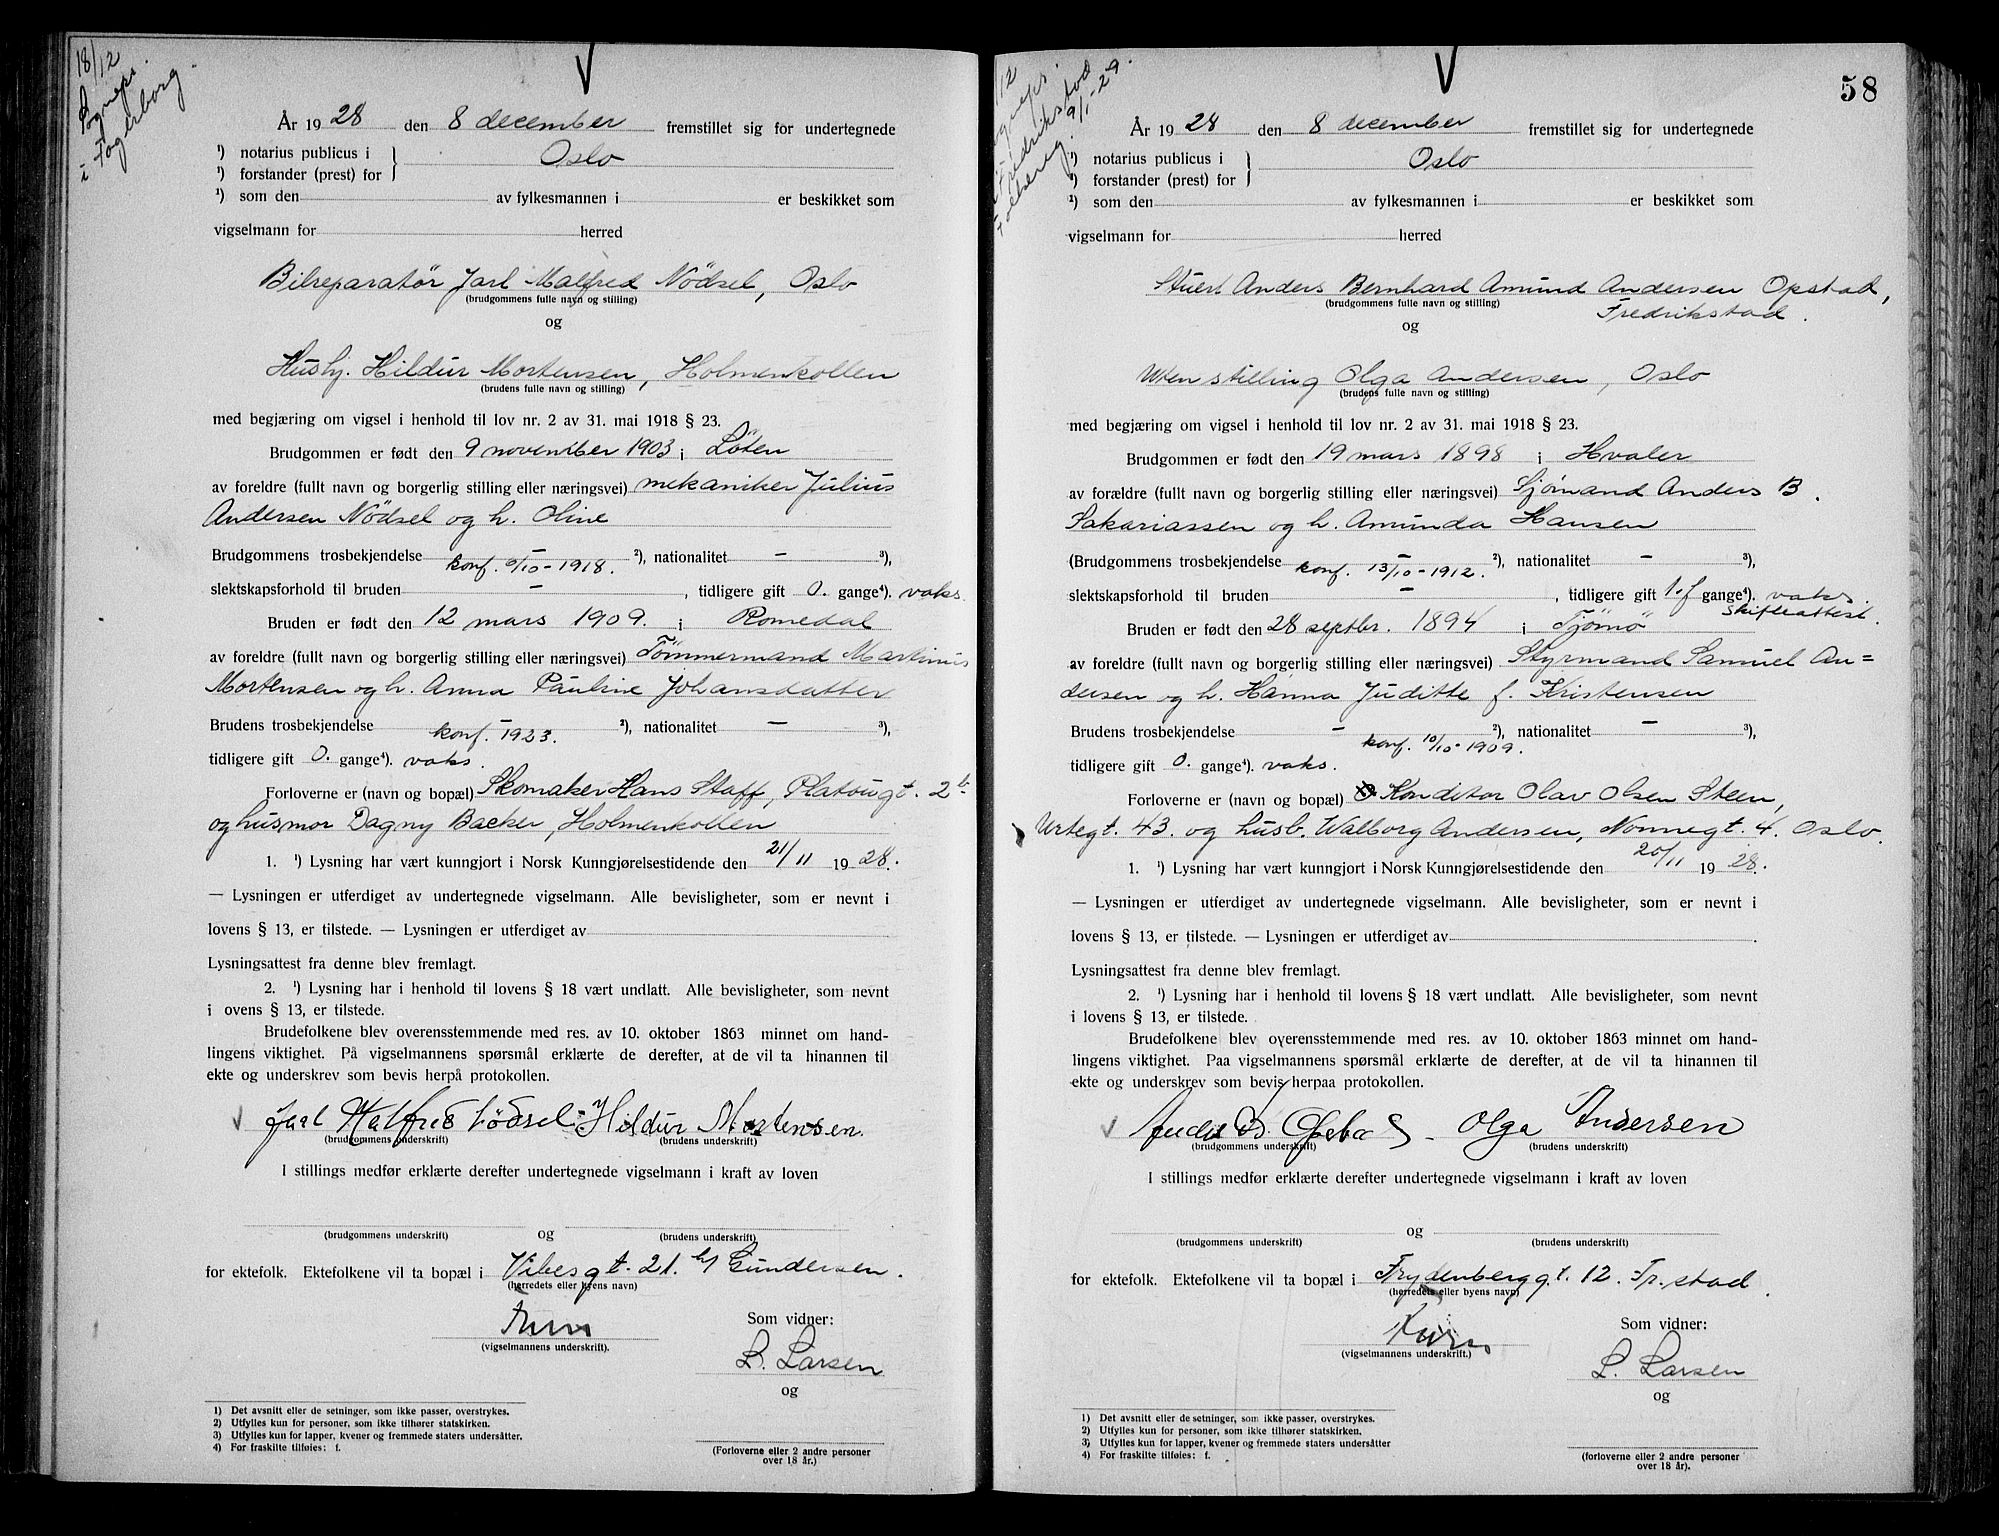 18/12
Sogneps.
i Fagerborg.
År 1928 den 8 december fremstillet sig for undertegnede
¹) notarius publicus i } Oslo
¹) forstander (prest) for
¹) som den av fylkesmannen i er beskikket som
vigselmann for herred
Bilreparatør Jarl Malfred Nödsel, Oslo
(brudgommens fulle navn og stilling)
og
Hushj. Hildur Mortensen, Holmenkollen
(brudens fulle navn og stilling)
med begjæring om vigsel i henhold til lov nr. 2 av 31. mai 1918 § 23.
Brudgommen er født den 9 november 1903 i Löten
av foreldre (fullt navn og borgerlig stilling eller næringsvei) mekaniker Julius
Andersen Nödsel og h. Oline
Brudgommens trosbekjendelse – ²), nationalitet – ³),
konf. /10-1918.
slektskapsforhold til bruden – , tidligere gift 0. gange⁴). vaks.
Bruden er født den 12 mars 1909. i Romedal
av foreldre (fullt navn og borgerlig stilling eller næringsvei) Tömmermand Martinus
Mortensen og h. Anna Pauline Johansdatter
Brudens trosbekjendelse – ²), nationalitet – ³),
konf. 1923.
tidligere gift 0. gange⁴). vaks.
Forloverne er (navn og bopæl) Skomaker Hans Staff, Platougt. 2
og husmor Dagny Backer, Holmenkollen
1. ¹) Lysning har vært kunngjort i Norsk Kunngjørelsestidende den 21/11 1928.
— Lysningen er utferdiget av undertegnede vigselmann. Alle bevisligheter, som er nevnt i
lovens § 13, er tilstede. — Lysningen er utferdiget av
Lysningsattest fra denne blev fremlagt.
2. ¹) Lysning har i henhold til lovens § 18 vært undlatt. Alle bevisligheter, som nevnt
i ovens § 13, er tilstede.
Brudefolkene blev overensstemmende med res. av 10. oktober 1863 minnet om hand-
lingens viktighet. På vigselmannens spørsmål erklærte de derefter, at de vil ta hinannen til
ekte og underskrev som bevis herpå protokollen.
Jarl Malfred Nödsel - Hildur Mortensen.
(brudgommens underskrift) (brudens underskrift)
I stillings medfør erklærte derefter undertegnede vigselmann i kraft av loven
og
(brudgommens underskrift) (brudens underskrift)
for ektefolk. Ektefolkene vil ta bopæl i Vibesgt. 21. b/ Gundersen.
(herredets eller byens navn)
Som vidner:
(vigselmannens underskrift).
L. Larsen
og
1) Det avsnitt eller de setninger, som ikke passer, overstrykes.
2) Utfylles kun for personer, som ikke tilhører statskirken.
3) Utfylles kun for lapper, kvener og fremmede staters undersåtter.
4) For fraskilte tilføies: f.
(Forloverne eller 2 andre personer
over 18 år.)
58
/12
ogneps.
Fredrikstad
9/1-29.
År 1928 den 8 december fremstillet sig for undertegnede
¹) notarius publicus i } Oslo
¹) forstander (prest) for
¹) som den av fylkesmannen i er beskikket som
vigselmann for herred
Stuert Anders Bernhard Amund Andersen Opstad,
Fredrikstad.
(brudgommens fulle navn og stilling)
og
Uten stilling Olga Andersen, Oslo
(brudens fulle navn og stilling)
med begjæring om vigsel i henhold til lov nr. 2 av 31. mai 1918 § 23.
Brudgommen er født den 19 mars 1898 i Hvaler
av forældre (fullt navn og borgerlig stilling eller næringsvei) Sjømand Anders B.
Sakariassen og h. Amunda Hansen
(Brudgommens trosbekjendelse – ²), nationalitet – ³),
konf. 13/10-1912.
slektskapsforhold til bruden – , tidligere gift 1.f gange⁴). vaks.
skifteattest.
Bruden er født den 28 septbr. 1894 i Tjömö
av foreldre (fullt navn og borgerlig stilling eller næringsvei) Styrmand Samuel An=
dersen og h. Hanna Juditte f. Kristensen
Brudens trosbekjendelse – ²), nationalitet – ³),
konf. 10/10-1909.
tidligere gift 0. gange⁴). vaks.
Forloverne er (navn og bopæl) Konditor Olav Olsen Steen,
Urtegt. 43. og husb. Walborg Andersen, Nonnegt. 4. Oslo.
1. ¹) Lysning har vært kunngjort i Norsk Kunngjørelsestidende den 20/11 1928.
— Lysningen er utferdiget av undertegnede vigselmann. Alle bevisligheter, som er nevnt i
lovens § 13, er tilstede. — Lysningen er utferdiget av
Lysningsattest fra denne blev fremlagt.
2. ¹) Lysning har i henhold til lovens § 18 vært undlatt. Alle bevisligheter, som nevnt
i lovens § 13, er tilstede.
Brudefolkene blev overensstemmende med res. av 10. oktober 1863 minnet om hand-
lingens viktighet. Paa vigselmannens spørsmål erklærte de derefter, at de vil ta hinannen til
ekte og underskrev som bevis herpaa protokollen.
Olga Andersen
(brudgommens underskrift) (brudens underskrift)
I stillings medfør erklærte derefter undertegnede vigselmann i kraft av loven
og
(brudgommens underskrift) (brudens underskrift)
for ektefolk. Ektefolkene vil ta bopæl i Frydenberggt. 12. Fr.stad.
(herredets eller byens navn)
Som vidner:
(vigselmannens underskrift.)
L. Larsen
og
1) Det avsnitt eller de setninger, som ikke passer, overstrykes.
2) Utfylles kun for personer, som ikke tilhører statskirken.
3) Utfylles kun for lapper, kvener og fremmede staters undersåtter
4) For fraskilte tilføies: f.
(forloverne eller 2 andre personer
over 18 år).